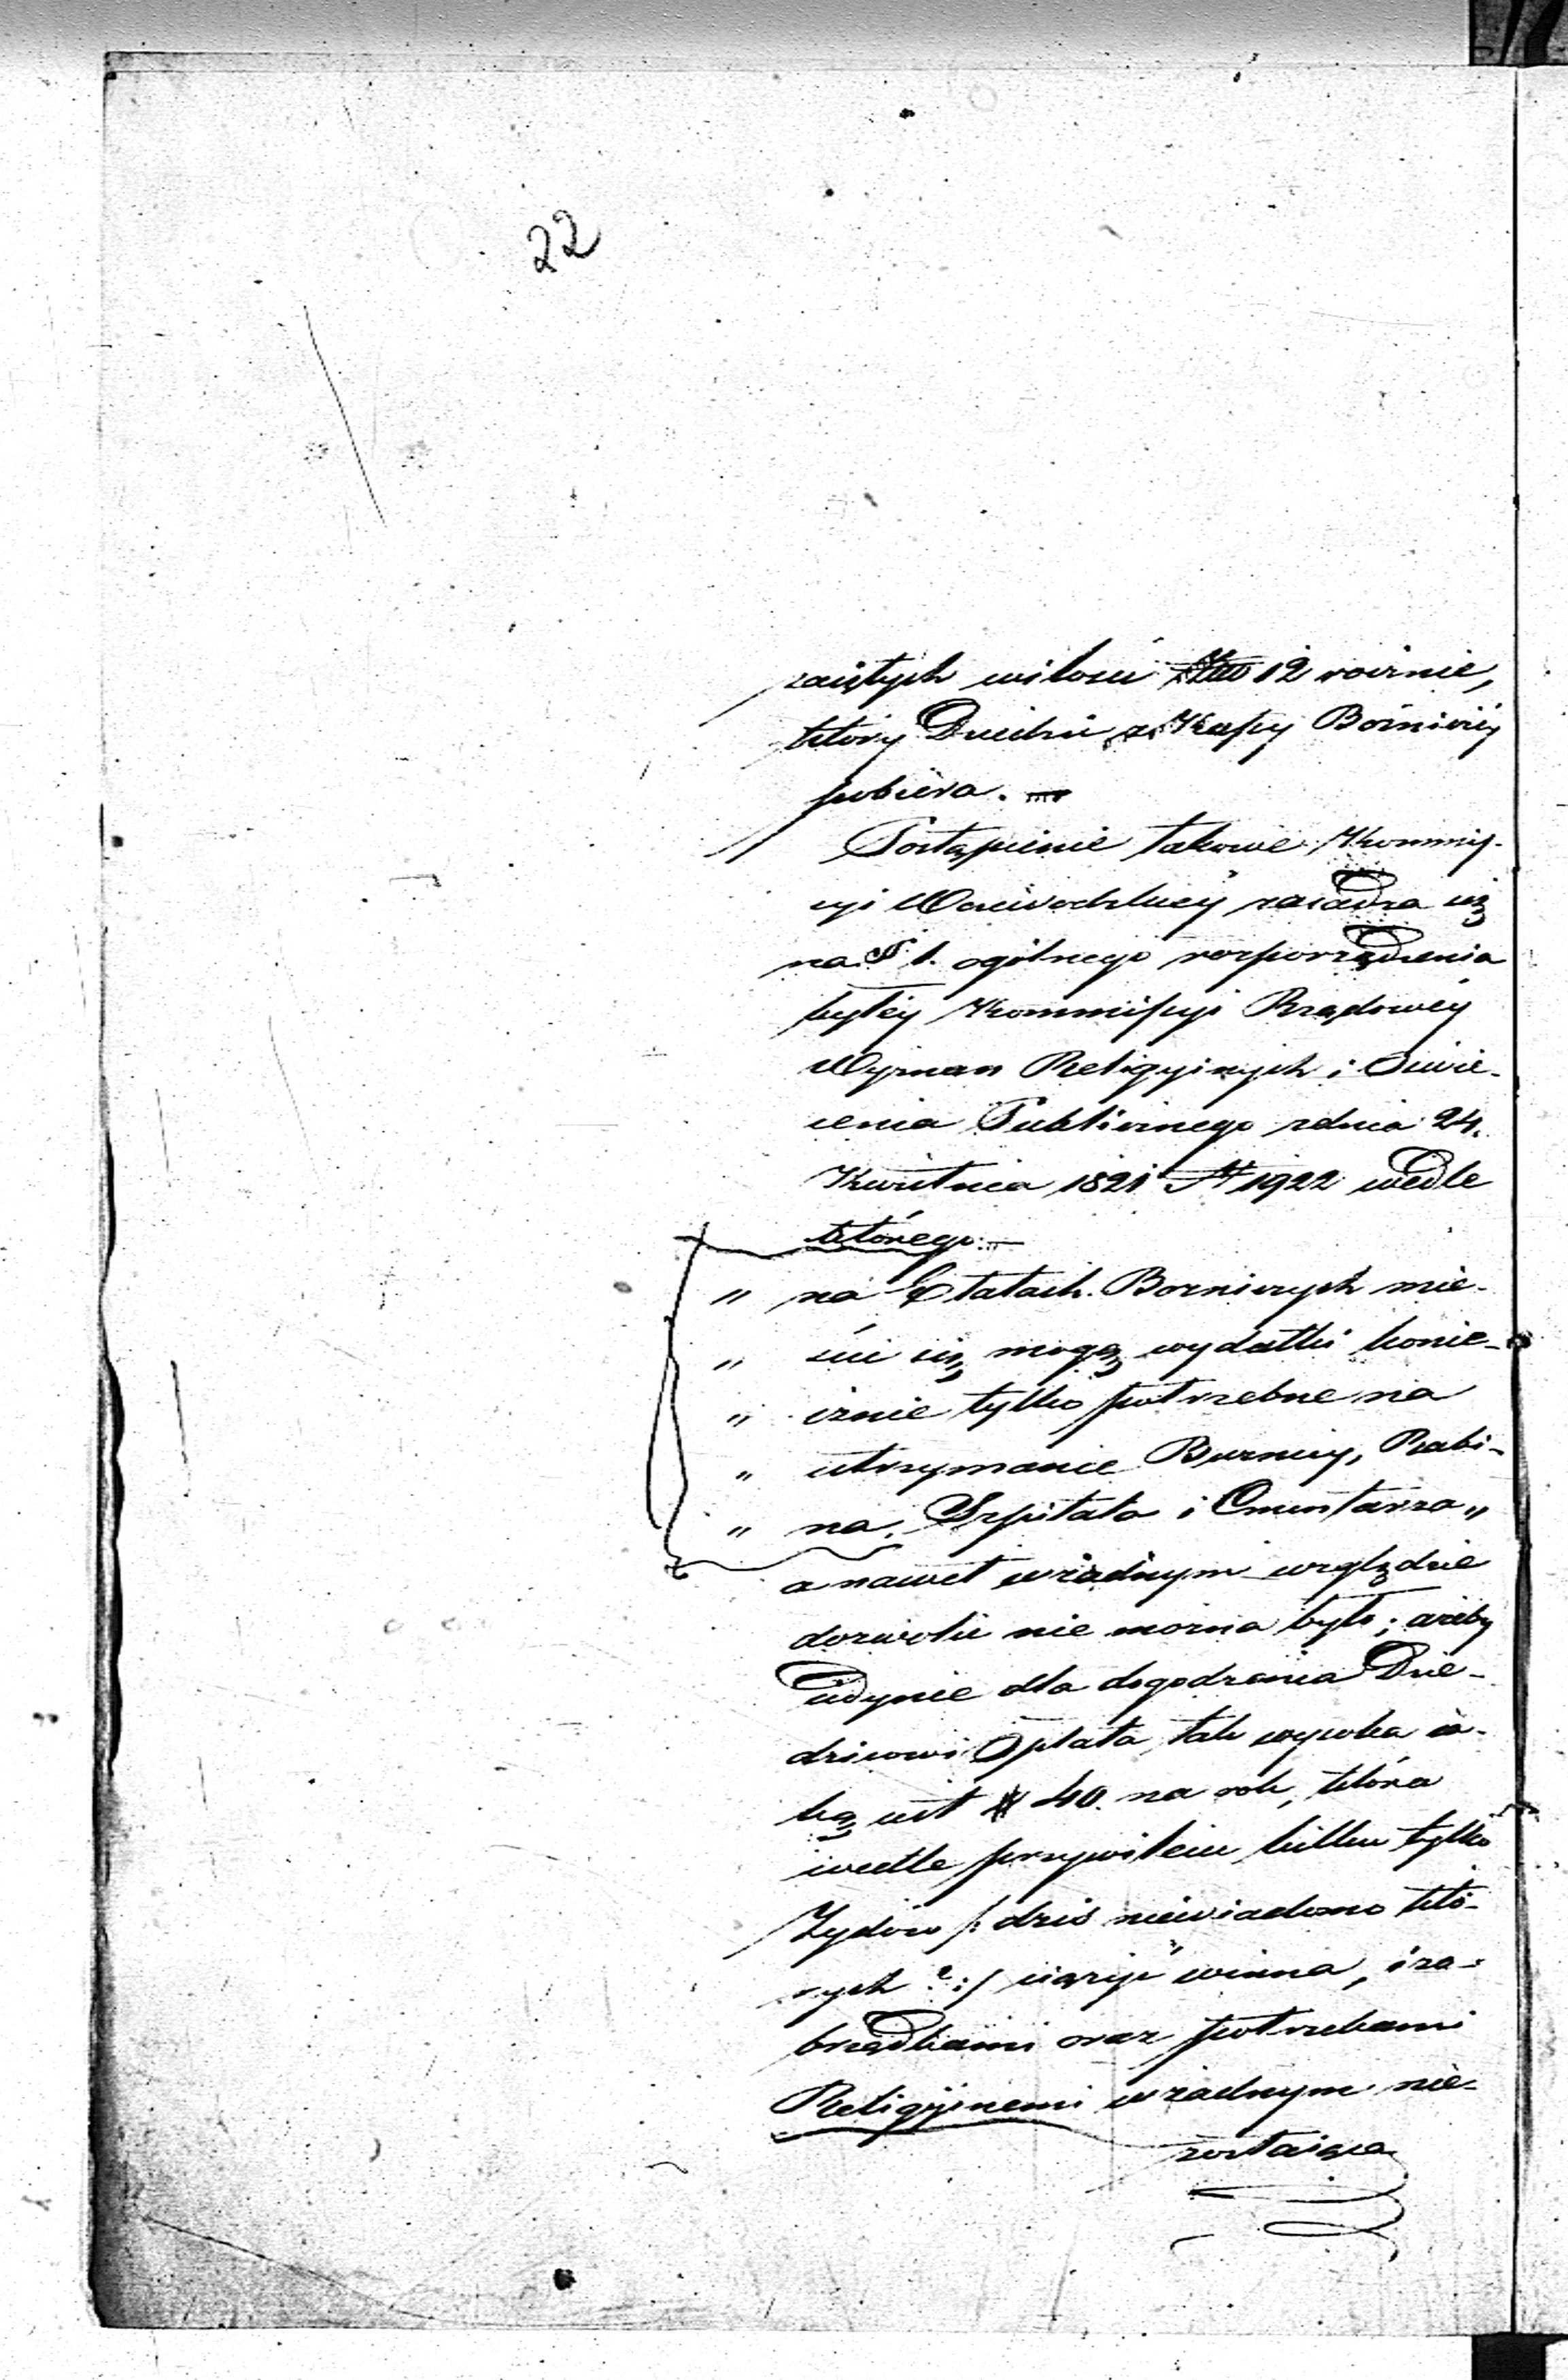 22
zaiętych w ilości 12 rocznie,
który Dziedzic z Kassy Bóżniczéy
pobiéra.
Postąpienie takowe Kommis-
syi Woiewódzkiéy zasadza się
na § 1. ogólnego rozporządzenia
byłéy Kommissyi Rządowéy
Wyznań Religyinych i Oświe-
cenia Publicznego z dnia 24.
Kwietnia 1821 N 1922 wedle
którego:
„ na Etatach Bozniczych mie-
„ ścić się mogą wydatki konie-
„ cznie tylko potrzebne na
„ utrzymanie Bóżnicy, Rabi-
„ na, Szpitala i Cmentarza „
a nawet w żadnym względzie
dozwolić nie można było; ażeby
iedynie dla dogodzenia Dzie-
dzicowi Opłata tak wysoka ia-
ką iest # 40. na rok, która
wedle przywileiu kilku tylko
Żydów /: dziś niewiadomo któ-
rych ? :/ ciążyć winna, i z o-
brządkami oraz potrzebami
Religyinemi w żadnym nie-
zostaiąca